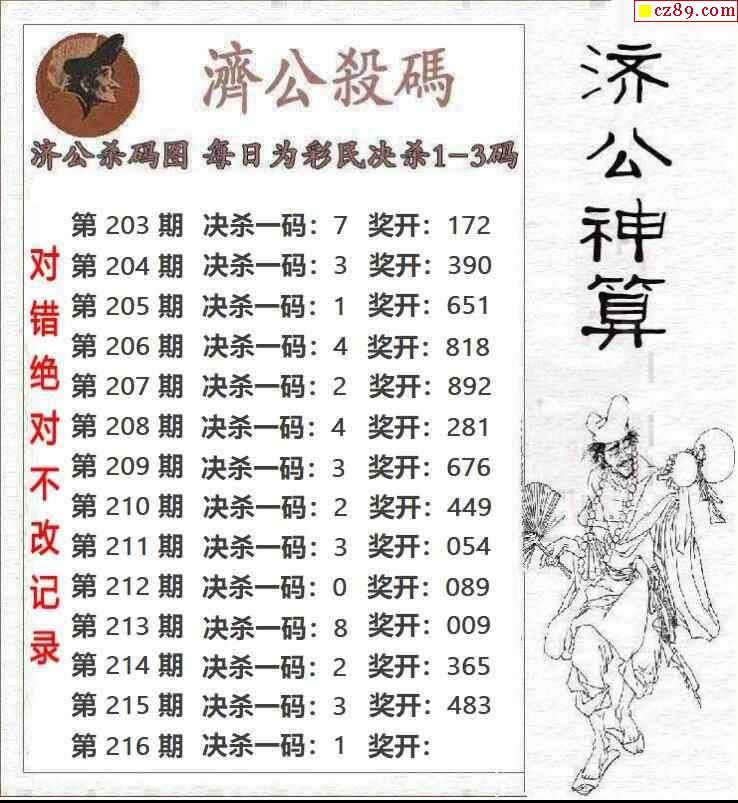 cz89.com
濟公殺碼
济公杀码图 每日为彩民决杀1-3码
第 203 期 决杀一码：7 奖开：172
第 204 期 决杀一码：3 奖开：390
第 205 期 决杀一码：1 奖开：651
第 206 期 决杀一码：4 奖开：818
第 207 期 决杀一码：2 奖开：892
第 208 期 决杀一码：4 奖开：281
第 209 期 决杀一码：3 奖开：676
第 210 期 决杀一码：2 奖开：449
第 211 期 决杀一码：3 奖开：054
第 212 期 决杀一码：0 奖开：089
第 213 期 决杀一码：8 奖开：009
第 214 期 决杀一码：2 奖开：365
第 215 期 决杀一码：3 奖开：483
第 216 期 决杀一码：1 奖开：
对错绝对不改记录
济公神算